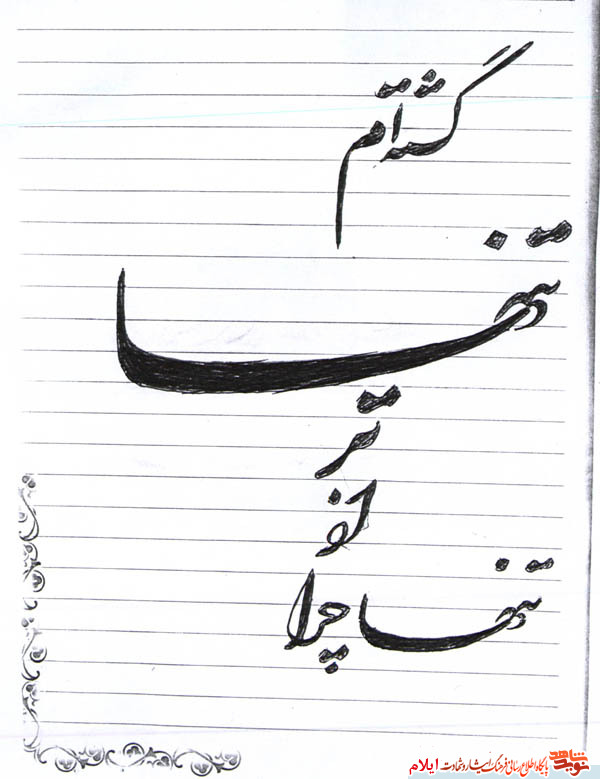 گشته‌ام
تنها
تر
از
تنها چرا
نوید شاهد
پایگاه اطلاع رسانی فرهنگ ایثار و شهادت ایلام